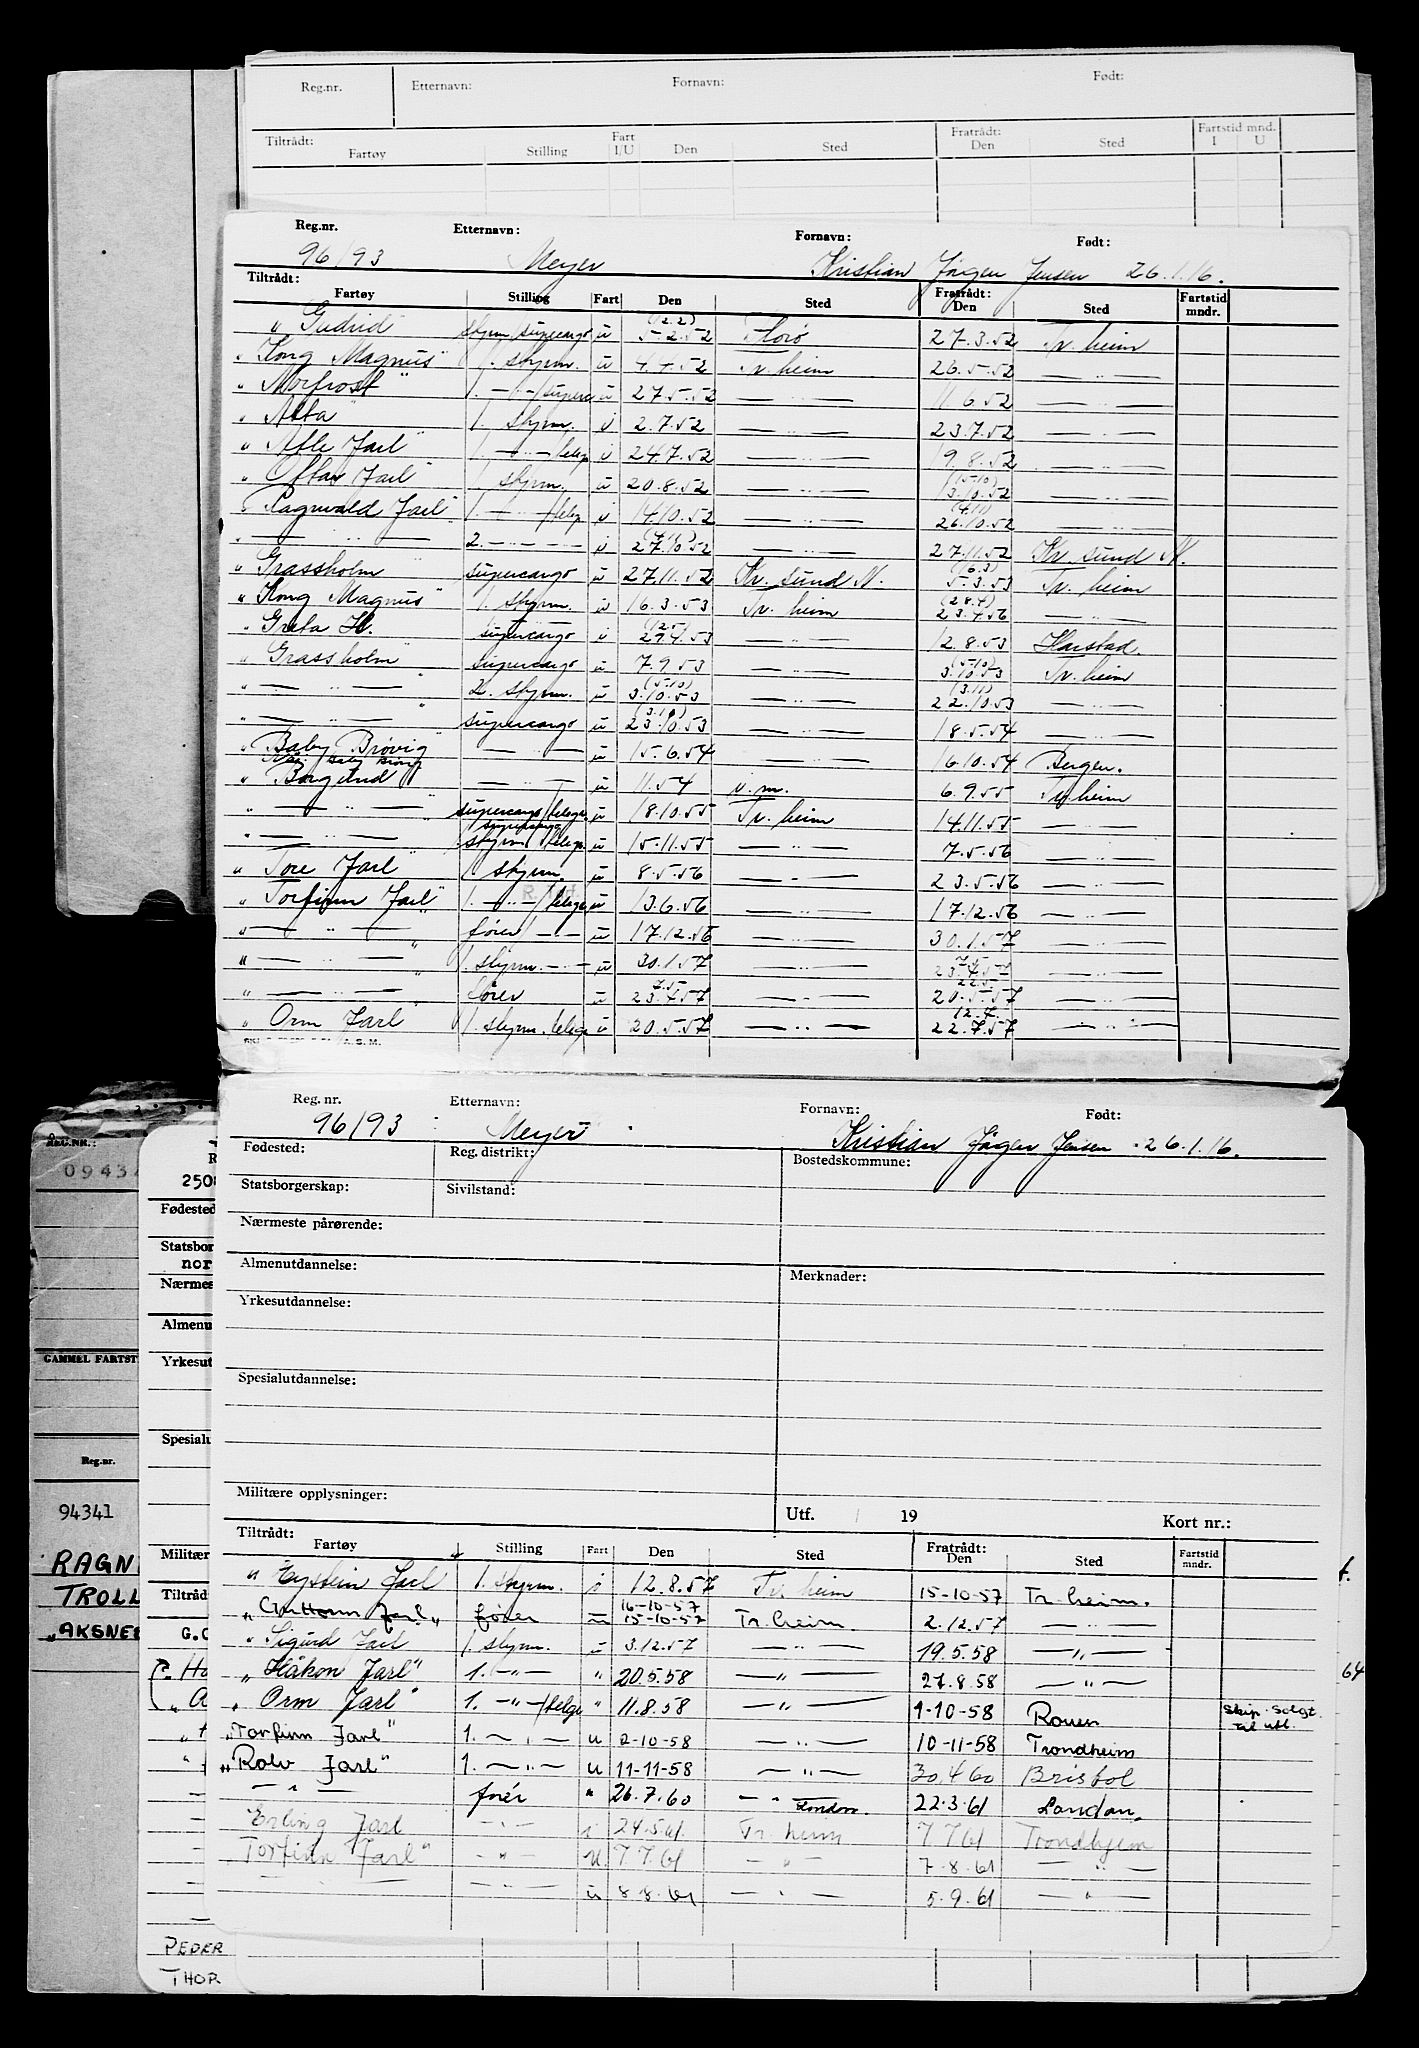 Reg.nr. Etternavn: Fornavn: Født:
Tiltrådt: Fartøy Stilling Fart I/U Den Sted Fratrådt: Den Sted Fartstid mnd. I U
Reg.nr. Etternavn: Fornavn: Født:
96/93 Meyer Kristian Jörgen Jensen 26.1.16.
Tiltrådt: Fartøy Stilling Fart Den Sted Fratrådt: Den Sted Fartstid mndr.
" Gudrid" styrm/supercargo u (12.2) 5.2.52 Florö 27.3.52 Tr. heim
" Kong Magnus" 1. styrm. u 4.4.52 Tr. heim 26.5.52 — " —
" Norfrost" 1. — " — /superc u 27.5.52 — " — 11.6.52 — " —
" Alta" 1. styrm. i 2.7.52 — " — 23.7.52 — " —
" Atle Jarl" 1. — " — telegr i 24.7.52 — " — 19.8.52 — " —
" Ottar Jarl" 1. styrm. u 20.8.52 — " — (15-10) 13.10.52 — " —
" Ragnvald Jarl" 1. — " — /telegr i 14.10.52 — " — (4.11) 26.10.52 — " —
" — " — 2. — " — i 27.10.52 — " — 27.11.52 Kr. sund N.
" Grassholm supercargo u 27.11.52 Kr. sund N. (6.3) 5.3.53 Tr. heim
" Kong Magnus" 1. styrm. u 16.3.53 Tr. heim (28.4) 23.4.56 — " —
" Greta H. supercargo i 29.4.53 — " — 12.8.53 Harstad.
" Grassholm" supercargo u 7.9.53 — " — (5-10) 3.10.53 Tr. heim
" — " — " 2. styrm. u (5-10) 3.10.53 — " — (3.11) 22.10.53 — " —
" — " — " supercargo u 23.10.53 — " — 18.5.54 — " —
" Baby Brøvig" — " — u 15.6.54 — " — 16.10.54 Bergen.
" Borgund" — " — u 11.54 u.m. 6.9.55 Tr. heim
" — " — " supercargo/telegr u 18.10.55 Tr. heim 14.11.55 — " —
" — " — " styrm. supercargo telegr u 15.11.55 — " — 7.5.56 — " —
" Tore Jarl" 1 styrm. u 8.5.56 — " — 23.5.56 — " —
" Torfinn Jarl" 1. — " — /telegr u 13.6.56 — " — 17.12.56 — " —
" — " — " fører — " — u 17.12.56 — " — 30.1.57 — " —
" — " — " 1. styrm. — " — u 30.1.57 — " — 7.5 23.4.57 — " —
" — " — " fører u 7.5 23.4.57 — " — 22.5 20.5.57 — " —
" Orm Jarl" 1. styrm. telegr u 20.5.57 — " — 12.7. 22.7.57 — " —
A.S.M.
Reg. nr. Etternavn: Fornavn: Født:
96/93 Meyer Kristian Jörgen Jensen 26.1.16.
Fødested: Reg. distrikt: Bostedskommune:
Statsborgerskap: Sivilstand:
Nærmeste pårørende:
Almenutdannelse: Merknader:
Yrkesutdannelse:
Spesialutdannelse:
Militære opplysninger: Utf. / 19 Kort nr.:
Tiltrådt: Fartøy Stilling Fart Den Sted Fratrådt: Den Sted Fartstid mndr.
" Eystein Jarl 1. styrm. i 12.8.57 Tr. heim 15-10-57 Tr. heim.
" Guttorm Jarl" fører u 16-10-57 15-10-57 Tr. heim. 2.12.57 — " —
" Sigurd Jarl 1 styrm. i 3.12.57 — " — 19.5.58 — " —
" Håkon Jarl" 1. — " — " 20.5.58 — " — 27.8.58 — " —
" Orm Jarl" 1. — " — /telgr " 11.8.58 — " — 1-10-58 Rouen Skip solgt til utl.
" Torfinn Jarl" 1. — " — u 2-10-58 — " — 10-11-58 Trondheim
" Rolv Jarl" 1. — " — u 11-11-58 — " — 30.4.60 Bristol
— " — förer " 26.7.60 — " — London. 22.3.61 London.
Erling Jarl — " — i 24.5.61. Tr. heim 7.7.61 Trondhjem
Torfinn Jarl" — " — u 7.7.61 — " — 7-8.61 — " —
— " — — " — u 8.8.61 — " — 5.9.61 — " —
REG.NR.:
GAMMEL FARTST
Reg.nr.
94341
RAGN
TROLL
"AKSNE
2508
Fødested
Statsbor
nor
Nærmes
Almenu
Yrkesut
Spesialu
Militær
Tiltrådt
64
PEDER
THOR